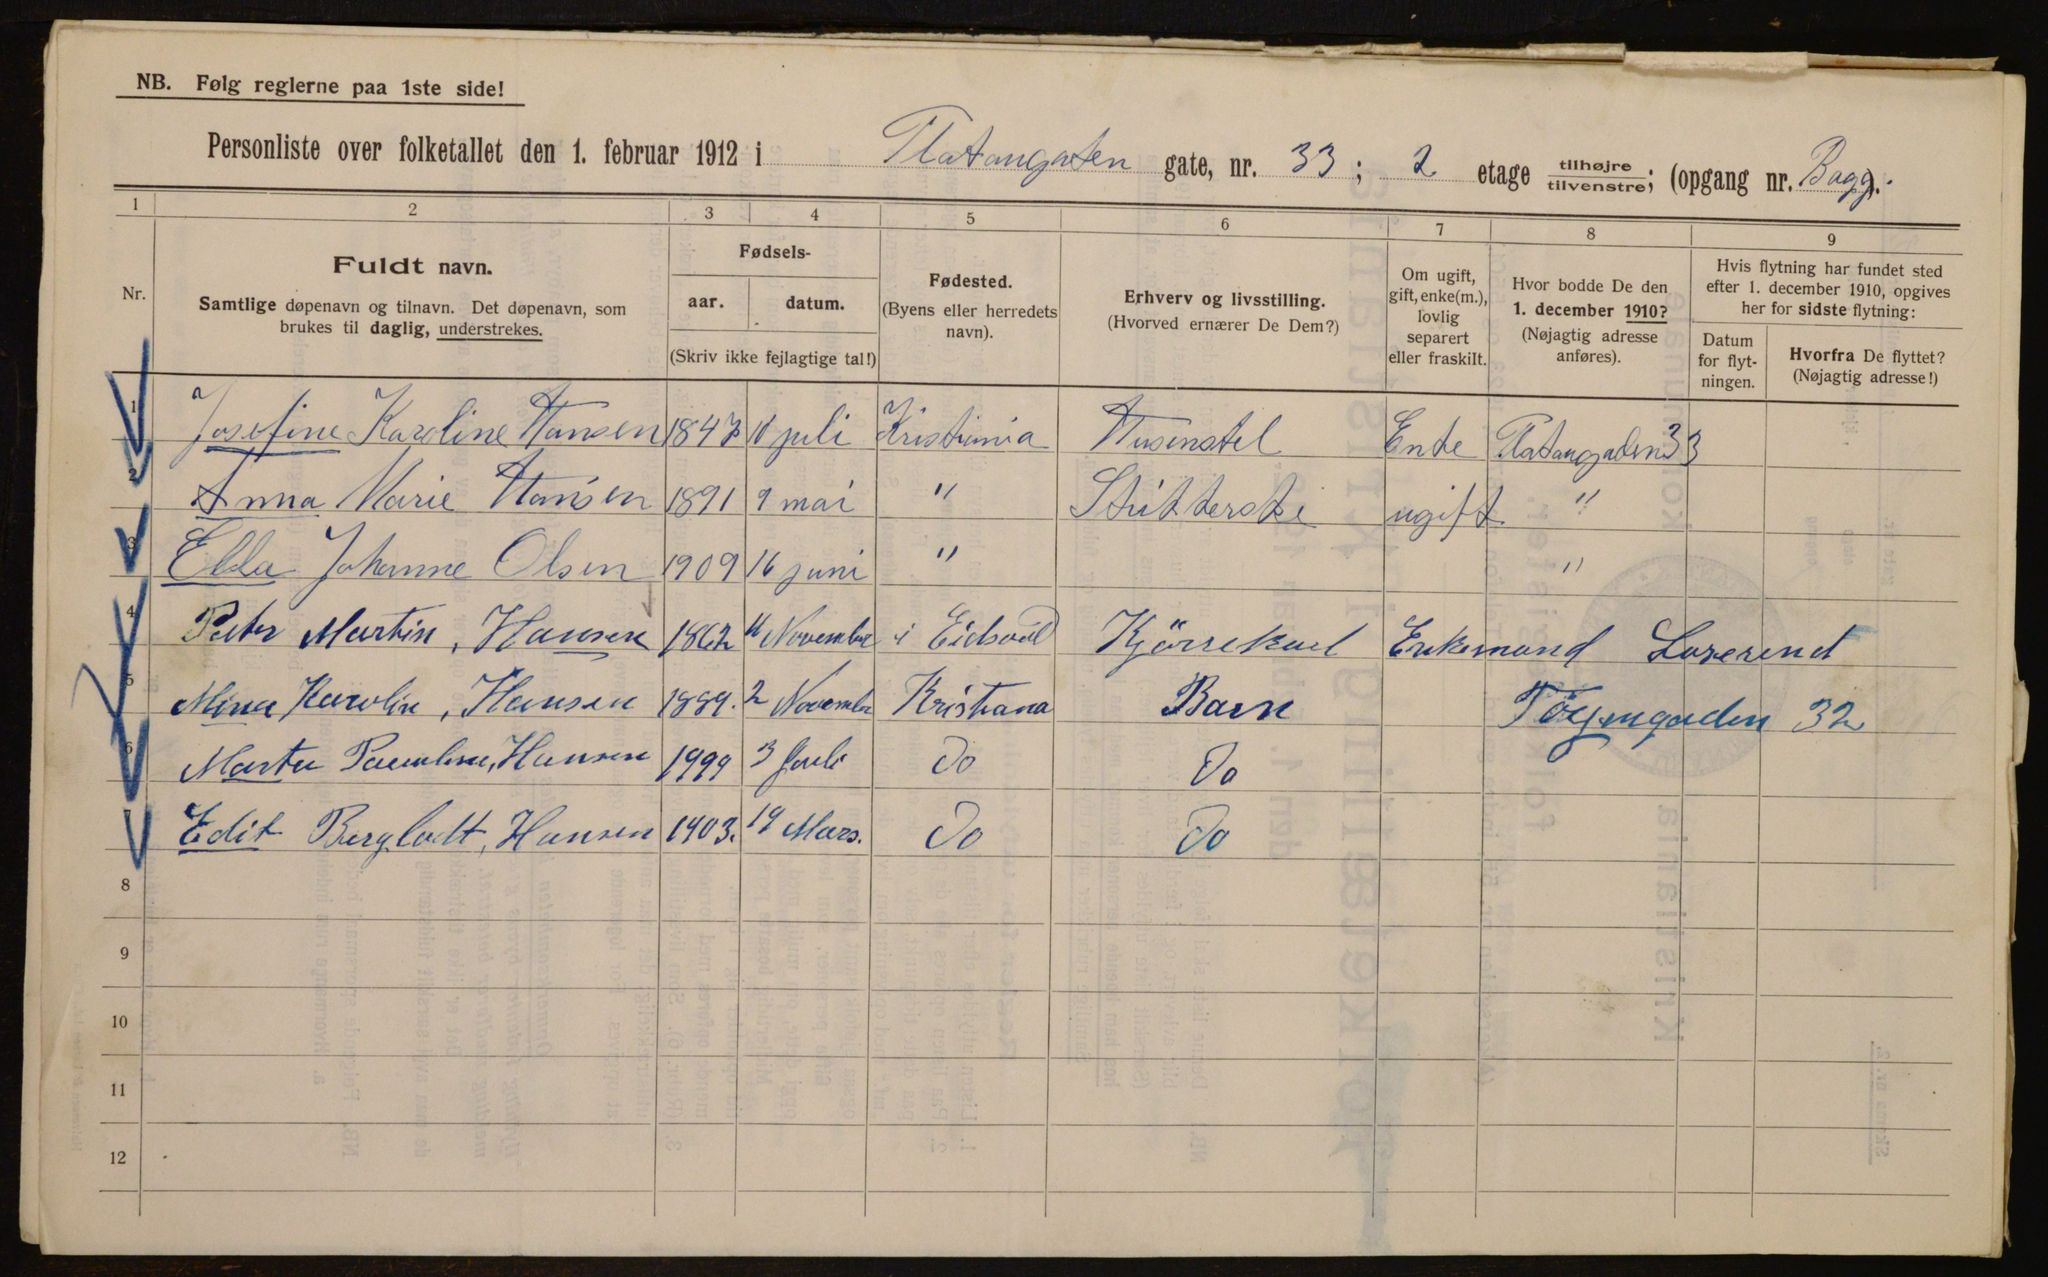 NB. Følg reglerne paa 1ste side!
Personliste over folketallet den 1. februar 1912 i Platangaten gate, nr. 33; 2 etage tilhøjre/tilvenstre; (opgang nr. Bagg.).
1 2 3 4 5 6 7 8 9
Nr.
Fuldt navn.
Samtlige døpenavn og tilnavn. Det døpenavn, som
brukes til daglig, understrekes.
Fødsels-
aar. datum.
(Skriv ikke fejlagtige tal!)
Fødested.
(Byens eller herredets
navn).
Erhverv og livsstilling.
(Hvorved ernærer De Dem?)
Om ugift,
gift, enke(m.),
lovlig
separert
eller fraskilt.
Hvor bodde De den
1. december 1910?
(Nøjagtig adresse
anføres).
Hvis flytning har fundet sted
efter 1. december 1910, opgives
her for sidste flytning:
Datum
for flyt-
ningen.
Hvorfra De flyttet?
(Nøjagtig adresse!)
1 Josefine Karoline Hansen 1847 10 juli Kristiania Husenstel Enke Platangaden 33
2 Anna Marie Hansen 1891 9 mai " ugift "
3 Ella Johanne Olsen 1909 16 juni " "
4 Peter Martin, Hansen 1862 November i Eidsvol Kjörrekael Enkemand
5 Mina Karolin, Hansen 1889. 2 Novembr Kristiana Barn Töyengaden 32
6 Marta Pauline, Hansen 1999 3 Juli Do Do
7 Edit Hansen 1903. 19 Mars. Do Do
8
9
10
11
12